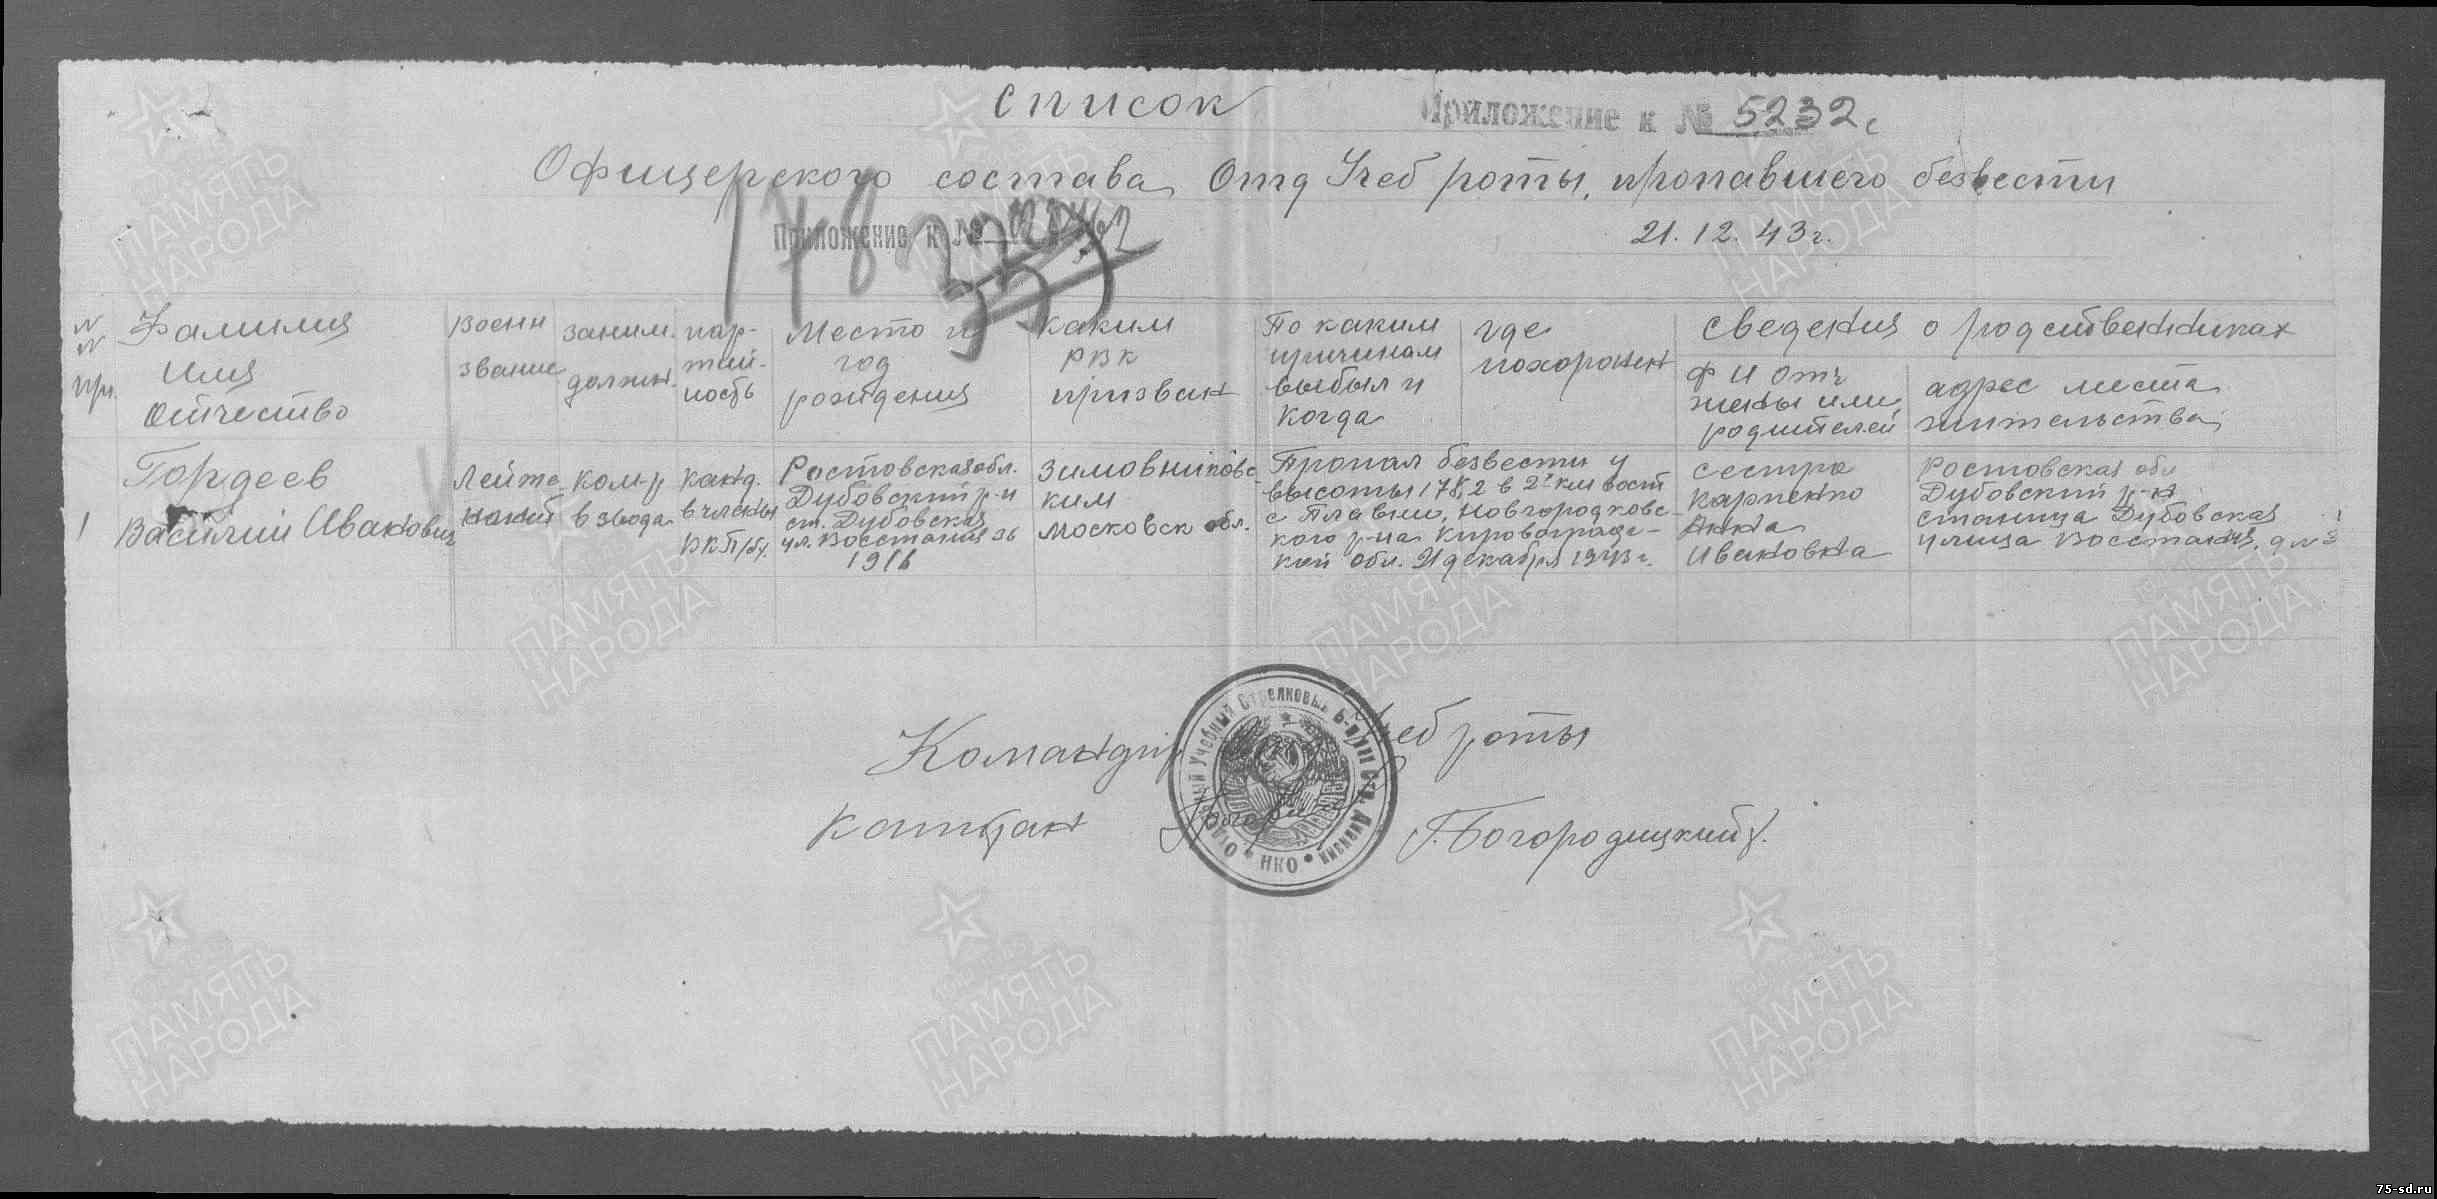 Список
Приложение к № 5232с
Офицерского состава Отд Учеб роты, пропавшего безвести
21.12.43г.
Приложение к №
178
NN
пр.
Фамилия
Имя
Отчество
Воен
звание
Заним.
должн.
пар-
тий-
ность
Место и
год
рождения
Каким
РВК
призван
По каким
причинам
выбыл и
когда
где
похоронен
Сведения о родственниках
Ф И Отч
жены или
родителей
адрес места
жительства
1
Гордеев
Василий Иванович
Лейте
нант
Ком-р
взвода
канд.
в члены
ВКП/б/.
Ростовская обл.
Дубовский р-н
ст. Дубовская
ул. Восстания 36
1916
Зимовниковс-
ким
московск обл.
Пропал безвести у
высоты 178,2 в 2х км вост
с Плавни, Новгородковс-
кого р-на Кировоградс-
кой обл. 21 декабря 1943г.
сестра
Карпенко
Анна
Ивановна
Ростовская обл
Дубовский р-н
станица Дубовская
улица Восстания, д №
Командир Учеб роты
капитан Г. Богородицкий
Отдельный Учебный Стрелковый Б-н 111 С-д. Дивизии • НКО •
ПАМЯТЬ
НАРОДА
ПАМЯТЬ
НАРОДА
ПАМЯТЬ
НАРОДА
ПАМЯТЬ
НАРОДА
ПАМЯТЬ
НАРОДА
ПАМЯТЬ
НАРОДА
ПАМЯТЬ
НАРОДА
ПАМЯТЬ
НАРОДА
ПАМЯТЬ
НАРОДА
75-sd.ru